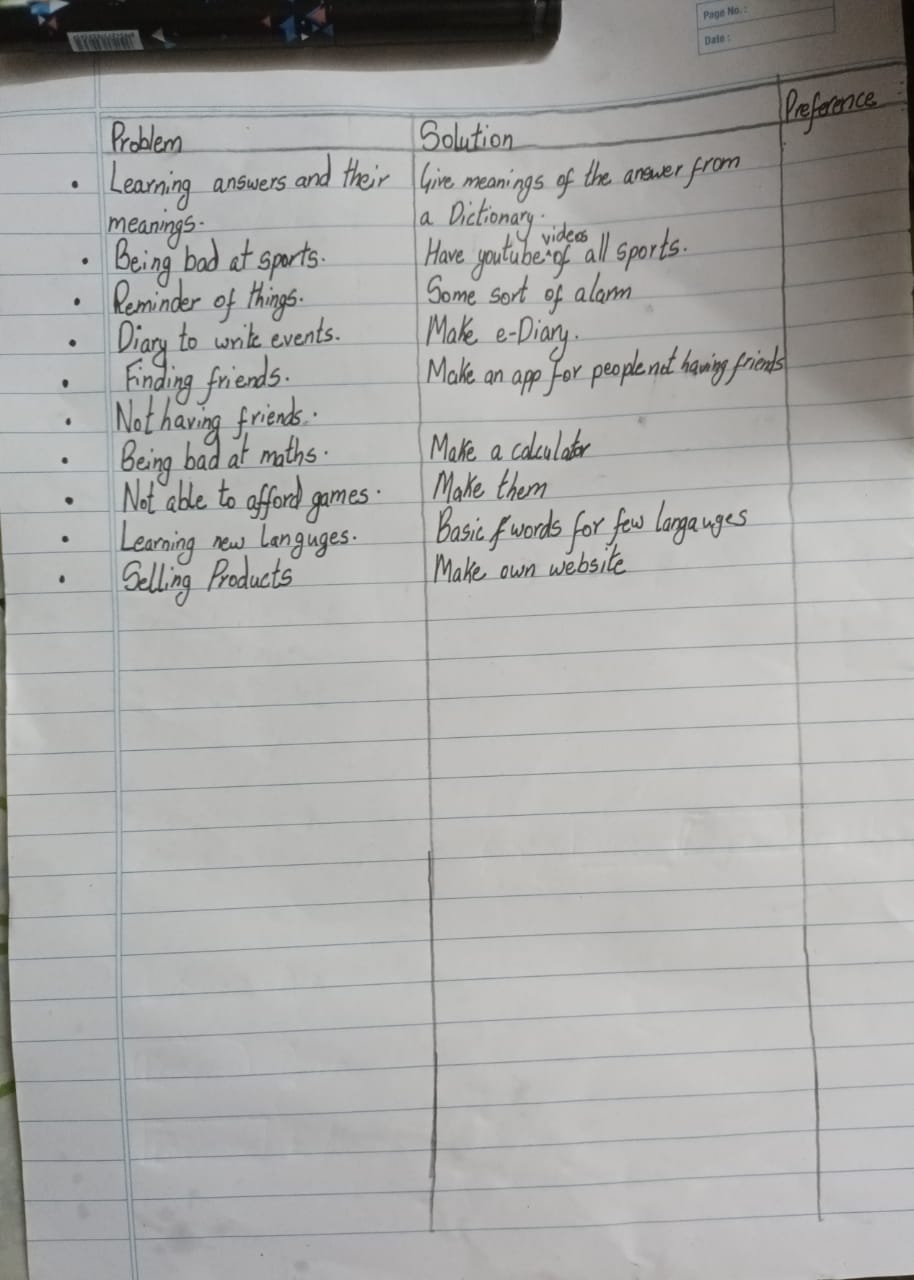 Page No.:
Date:
Preference
Problem Solution
• Learning answers and their Give meanings of the answer from
meanings. a Dictionary.
• Being bad at sports. Have youtube videos of all sports.
• Reminder of things. Some sort of alarm
• Diary to write events. Make e-Diary.
• Finding friends. Make an app for people not having friends
• Not having friends.
• Being bad at maths. Make a calculator
• Not able to afford games. Make them
• Learning new Languges. Basic words for few langauges
• Selling Products Make own website